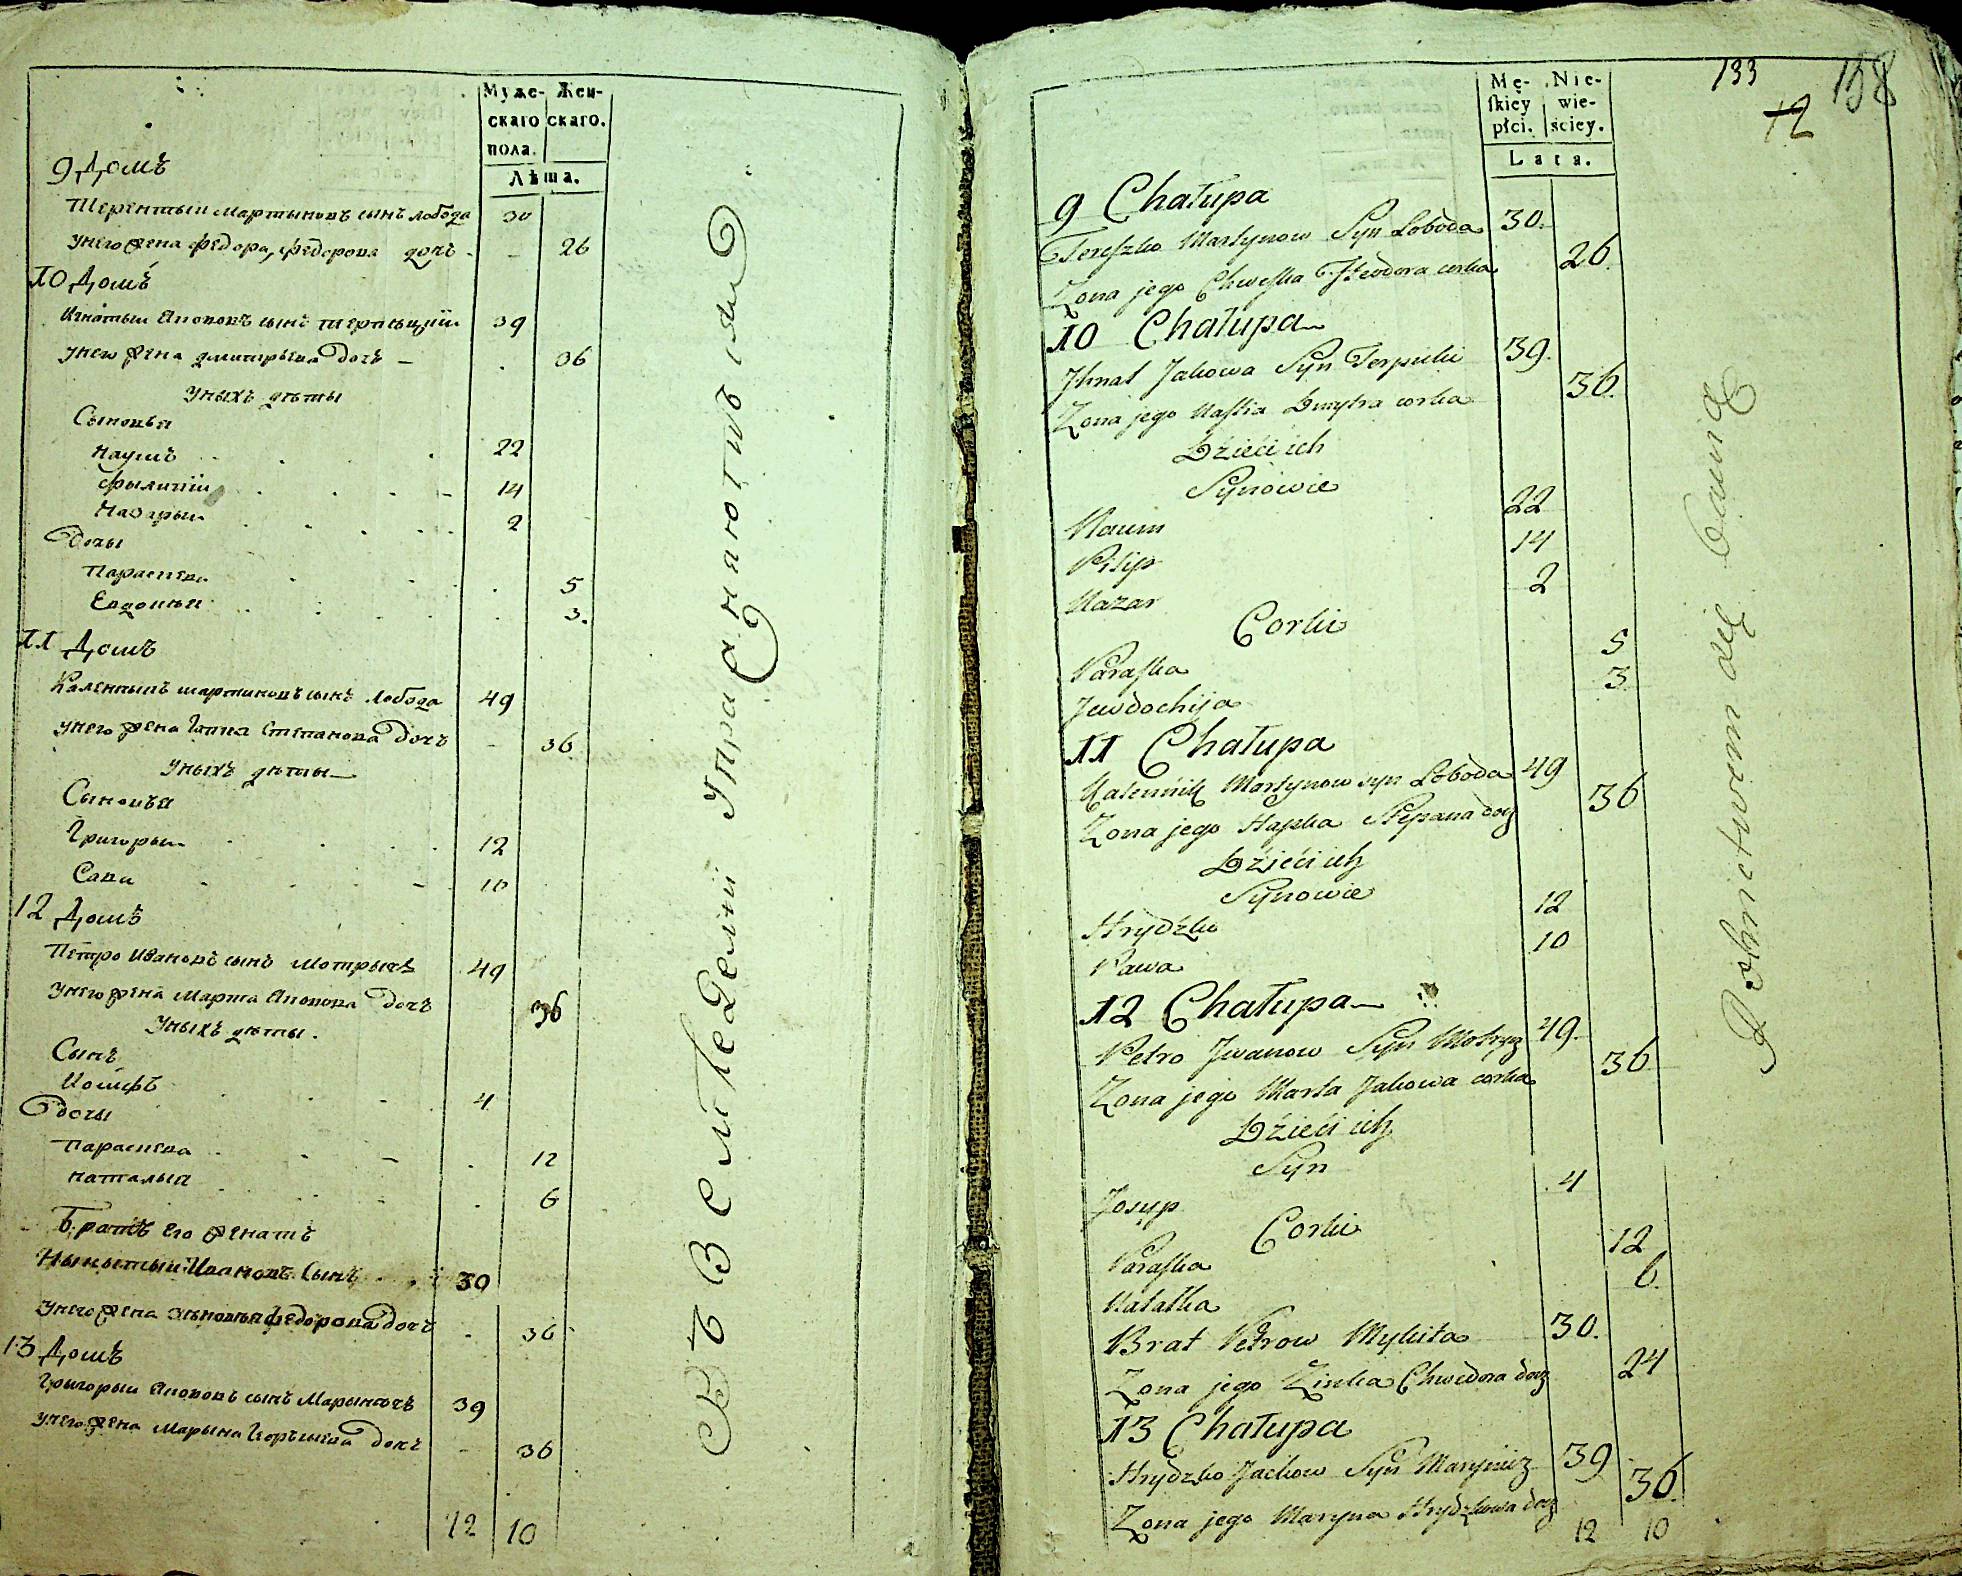 Муже- Жен-
скаго скаго.
пола.
Лѣта.
9 Домъ
Терентыи Мартыновъ сынъ Лобода 30
унего жена Федора, Федорова дочь 26
10 Домъ
Игнатыи Якововъ сынъ Терпецкiи 39
унего жена Дмитрыева дочь 36
Уныхъ дѣты
Сыновья
Наумъ 22
Фылипiи 14
Назарыи 2
Дочы
Параскева 5
Евдокия 3.
11 Домъ
Калентыи Мартиновъ сынъ Лобода 49
унего жена Гапка Степанова дочъ 36
Уныхъ дѣты
Сыновья
Григорыи 12
Сава 10
12 Домъ
Петро Ивановъ сынъ Мотрычъ 49
Унего жена Марта Яковова дочъ 36
Уныхъ дѣты.
Сынъ
Иосифъ 4
Дочы
Параскева 12
Наталыя 6
Братъ его женатъ
Никытыи Ивановъ Сынъ 30
Унего жена Зѣновья Федорова дочъ 36
13 Домъ
Григорыи Якововъ сынъ Марыничъ 39
унего жена Марына дочъ 36
12 10
Съ Земледелiи Упражняютъся
133
158
12
Mę- Nie-
skiey wie-
płci. ściey.
Lata.
9 Chałupa
Tereszko Martynow Syn Łoboda 30.
Żona jego Chweska Fteodora corka 26.
10 Chałupa
Jhnat Jakowa Syn Terpicki 39.
Żona jego Nastia Dmytra corka 36.
Dzieći ich
Synowie
Naum 22
Pilip 14
Nazar 2
Corki
Paraska 5
Jewdochija 3.
11 Chałupa
Kalennik Martynow syn Łoboda 49
Żona jego Hapka Stepana doq 36
Dzieći ich
Synowie
Hrydźko 12
Sawa 10
12 Chałupa
Petro Jwanow Syn Motrycz 49.
Żona jego Marta Jakowa corka 36
Dzieći ich
Syn
Josyp 4
Corki
Paraska 12
Natalka 6.
Brat Petrow Mykita 30.
Żona jego Zinka Chwedora doq 24
13 Chałupa
Hrydzko Jackow Syn Marynicz 39
Żona jego Maryna Hrydzkowa doq 36.
12 10
Rolnictwem się bawią